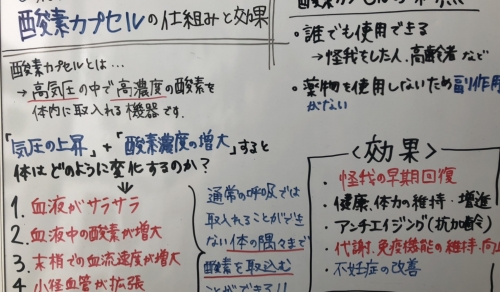 酸素カプセルの仕組みと効果
酸素カプセルとは…
→高気圧の中で高濃度の酸素を
体内に取入れる機器です.
「気圧の上昇」+「酸素濃度の増大」すると
体はどのように変化するのか?
1. 血液がサラサラ
2. 血液中の酸素が増大
3. 末梢での血流速度が増大
4 小径血管が拡張
通常の呼吸では
取入れることができ
ない体の隅々まで
酸素を取込む
ことができる!!
・誰でも使用できる
→怪我をした人、高齢者など
・薬物を使用しないため副作用
がない
<効果>
・怪我の早期回復
・健康、体力の維持・増進
・アンチエイジング(抗加齢)
・代謝、免疫機能の維持・向上
・不妊症の改善